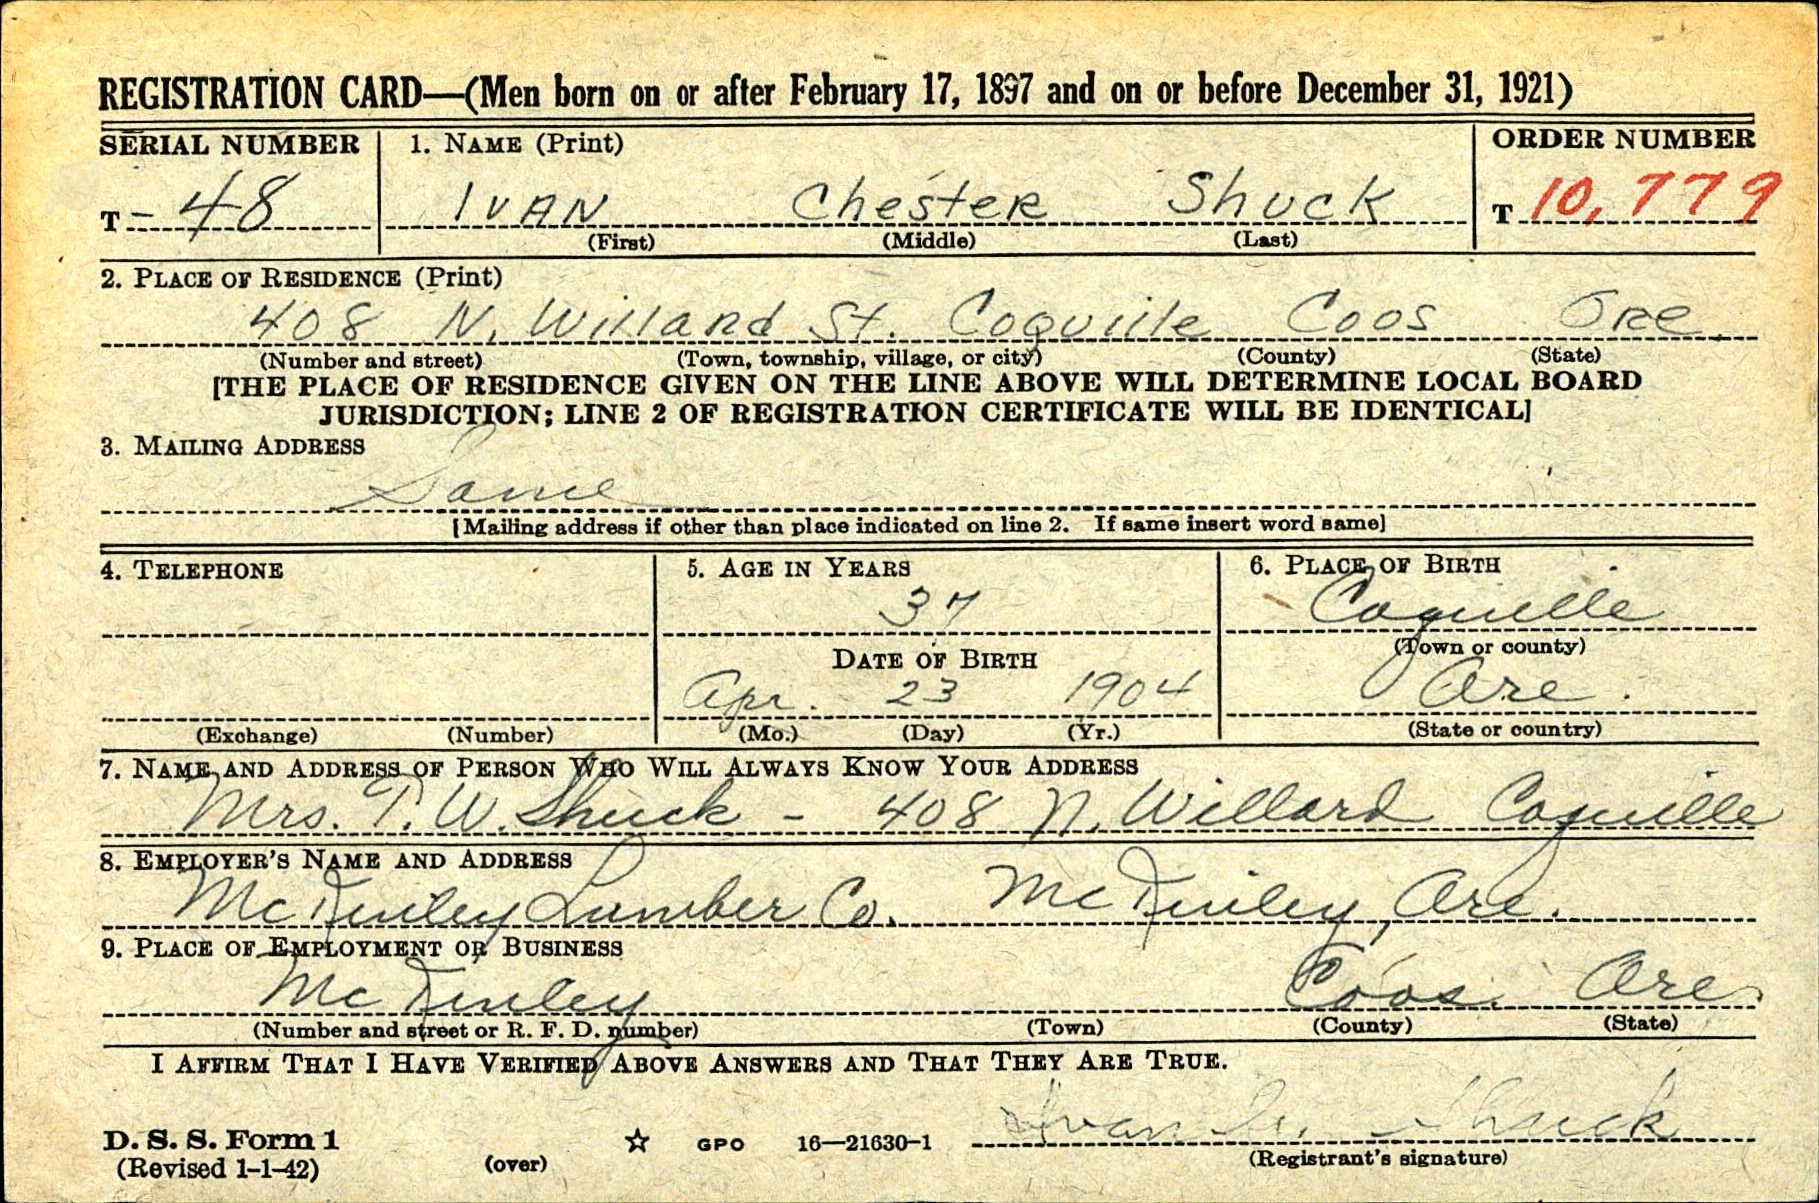 REGISTRATION CARD—(Men born on or after February 17, 1897 and on or before December 31, 1921)
SERIAL NUMBER 1. NAME (Print) ORDER NUMBER
T- 48 IVAN Chester Shuck T 10,779
(First) (Middle) (Last)
2. PLACE OF RESIDENCE (Print)
408 N. Willard St. Coquille Coos Ore.
(Number and street) (Town, township, village, or city) (County) (State)
[THE PLACE OF RESIDENCE GIVEN ON THE LINE ABOVE WILL DETERMINE LOCAL BOARD
JURISDICTION; LINE 2 OF REGISTRATION CERTIFICATE WILL BE IDENTICAL]
3. MAILING ADDRESS
Same
[Mailing address if other than place indicated on line 2. If same insert word same]
4. TELEPHONE 5. AGE IN YEARS 6. PLACE OF BIRTH
37 Coquille
(Town or county)
DATE OF BIRTH
Apr. 23 1904 Ore.
(Exchange) (Number) (Mo.) (Day) (Yr.) (State or country)
7. NAME AND ADDRESS OF PERSON WHO WILL ALWAYS KNOW YOUR ADDRESS
Mrs. T. W. Shuck - 408 N. Willard Coquille
8. EMPLOYER'S NAME AND ADDRESS
McKinley Lumber Co. McKinley, Ore.
9. PLACE OF EMPLOYMENT OR BUSINESS
McKinley Coos. Ore.
(Number and street or R. F. D. number) (Town) (County) (State)
I AFFIRM THAT I HAVE VERIFIED ABOVE ANSWERS AND THAT THEY ARE TRUE.
Ivan C. Shuck
D. S. S. Form 1 GPO 16—21630-1
(Revised 1-1-42) (over) (Registrant's signature)